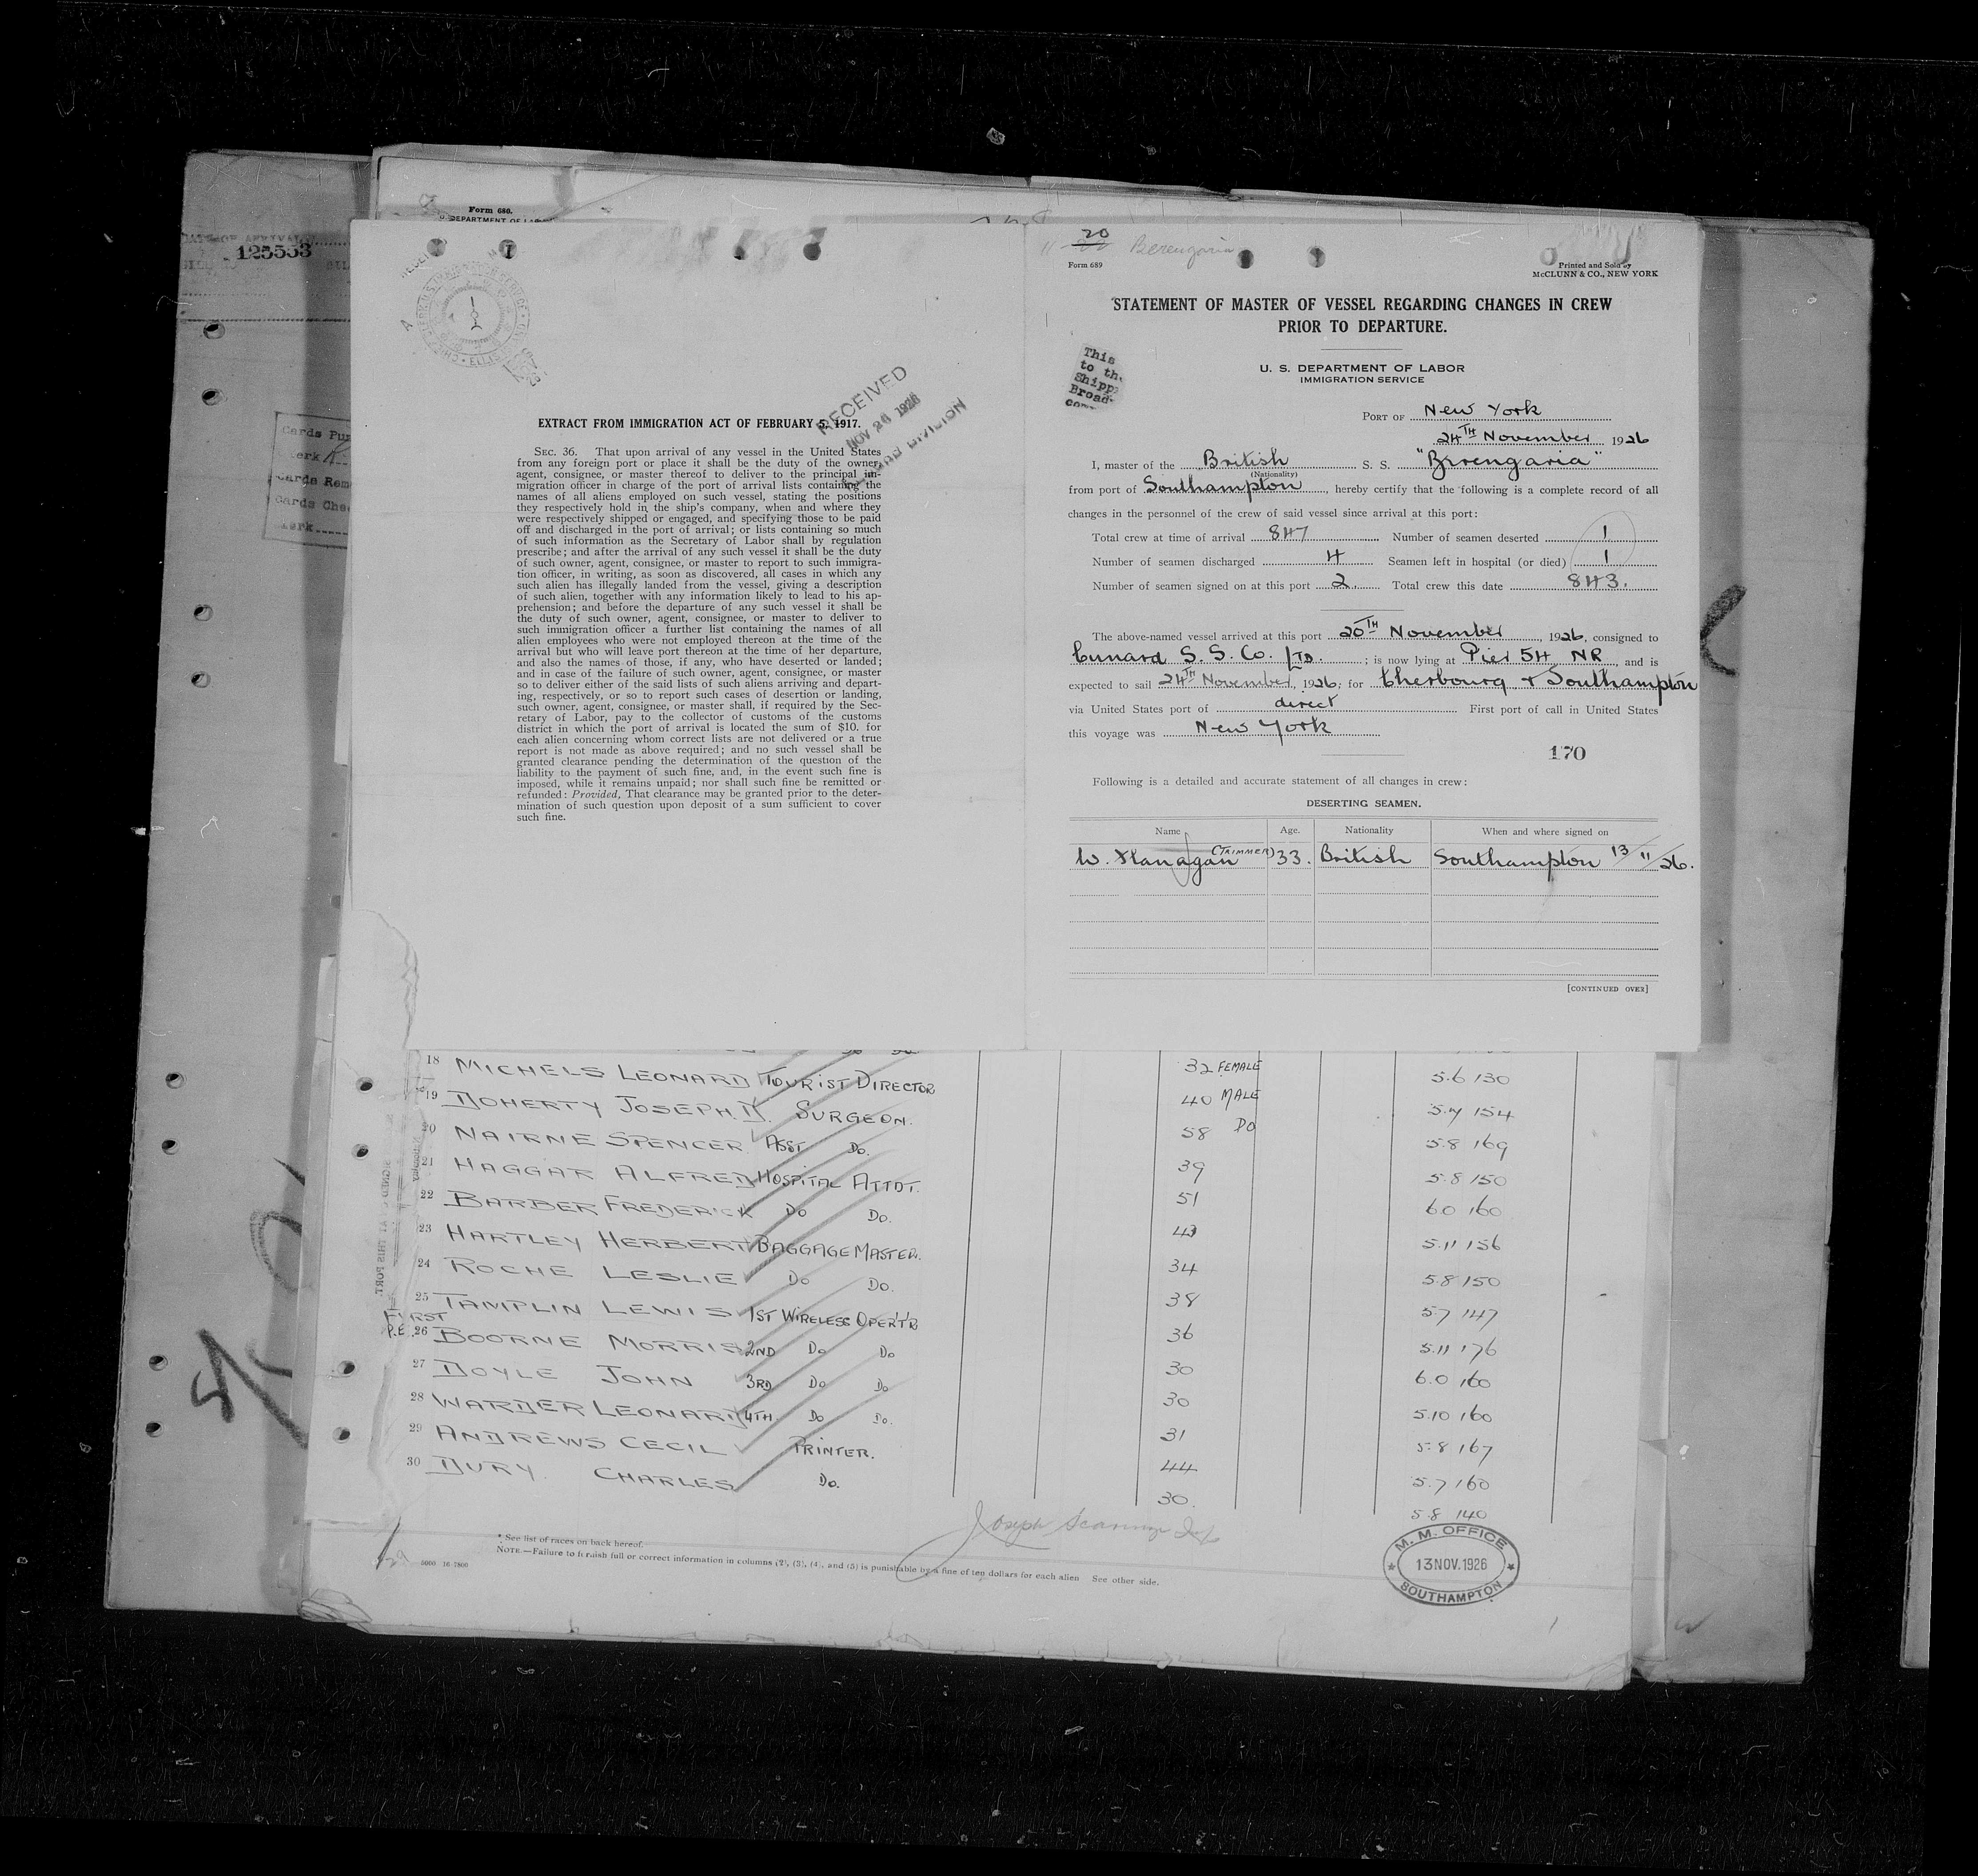 Form 680.
125553
Cards Pur
erk
Cards Rem
Cards Che
erk
EXTRACT FROM IMMIGRATION ACT OF FEBRUARY 5, 1917.
RECEIVED
NOV 26 1926
DIVISION
SEC. 36. That upon arrival of any vessel in the United States
from any foreign port or place it shall be the duty of the owner,
agent, consignee, or master thereof to deliver to the principal im-
migration officer in charge of the port of arrival lists containing the
names of all aliens employed on such vessel, stating the positions
they respectively hold in the ship's company, when and where they
were respectively shipped or engaged, and specifying those to be paid
off and discharged in the port of arrival; or lists containing so much
of such information as the Secretary of Labor shall by regulation
prescribe; and after the arrival of any such vessel it shall be the duty
of such owner, agent, consignee, or master to report to such immigra-
tion officer, in writing, as soon as discovered, all cases in which any
such alien has illegally landed from the vessel, giving a description
of such alien, together with any information likely to lead to his ap-
prehension; and before the departure of any such vessel it shall be
the duty of such owner, agent, consignee, or master to deliver to
such immigration officer a further list containing the names of all
alien employees who were not employed thereon at the time of the
arrival but who will leave port thereon at the time of her departure,
and also the names of those, if any, who have deserted or landed;
and in case of the failure of such owner, agent, consignee, or master
so to deliver either of the said lists of such aliens arriving and depart-
ing, respectively, or so to report such cases of desertion or landing,
such owner, agent, consignee, or master shall, if required by the Sec-
retary of Labor, pay to the collector of customs of the customs
district in which the port of arrival is located the sum of $10. for
each alien concerning whom correct lists are not delivered or a true
report is not made as above required; and no such vessel shall be
granted clearance pending the determination of the question of the
liability to the payment of such fine, and, in the event such fine is
imposed, while it remains unpaid; nor shall such fine be remitted or
refunded: Provided, That clearance may be granted prior to the deter-
mination of such question upon deposit of a sum sufficient to cover
such fine.
20
Berengaria
Form 689
Printed and Sold by
McCLUNN & CO., NEW YORK
STATEMENT OF MASTER OF VESSEL REGARDING CHANGES IN CREW
PRIOR TO DEPARTURE.
This
to the
Shipp
Broad
com
U. S. DEPARTMENT OF LABOR
IMMIGRATION SERVICE
PORT OF New York
24TH November 1926
I, master of the British S. S. "Berengaria"
(Nationality)
from port of Southampton, hereby certify that the following is a complete record of all
changes in the personnel of the crew of said vessel since arrival at this port:
Total crew at time of arrival 847 Number of seamen deserted 1
Number of seamen discharged 4 Seamen left in hospital (or died) 1
Number of seamen signed on at this port 2. Total crew this date 843.
The above-named vessel arrived at this port 20TH November, 1926, consigned to
Cunard S. S. Co. LTD. ; is now lying at Pier 54 NR, and is
expected to sail 24TH November, 1926, for Cherbourg & Southampton
via United States port of direct First port of call in United States
this voyage was New York
170
Following is a detailed and accurate statement of all changes in crew:
DESERTING SEAMEN.
Name Age. Nationality When and where signed on
W. Flanagan (TRIMMER) 33. British Southampton 13/11/26.
[CONTINUED OVER]
18 MICHELS LEONARD TOURIST DIRECTOR 32 FEMALE 5.6 130
19 DOHERTY JOSEPH. D. SURGEON. 40 MALE 5.7 154
20 NAIRNE SPENCER ASST DO. 58 DO 5.8 169
21 HAGGAR ALFRED HOSPITAL ATTDT. 39 5.8 150
22 BARBER FREDERICK DO DO. 51 6.0 160
23 HARTLEY HERBERT BAGGAGE MASTER. 43 5.11 156
24 ROCHE LESLIE DO DO. 34 5.8 150
25 TAMPLIN LEWIS 1ST WIRELESS OPERT'R 38 5.7 147
FIRST
P.E. 26 BOORNE MORRIS 2ND DO DO 36 5.11 176
27 DOYLE JOHN 3RD DO DO 30 6.0 160
28 WARDER LEONARD 4TH DO DO. 30 5.10 160
29 ANDREWS CECIL PRINTER. 31 5.8 167
30 DURY CHARLES DO. 44 5.7 160
30. 5.8 140
* See list of races on back hereof.
NOTE.—Failure to furnish full or correct information in columns (2), (3), (4), and (5) is punishable by a fine of ten dollars for each alien See other side.
M. M. OFFICE
13 NOV. 1926
SOUTHAMPTON